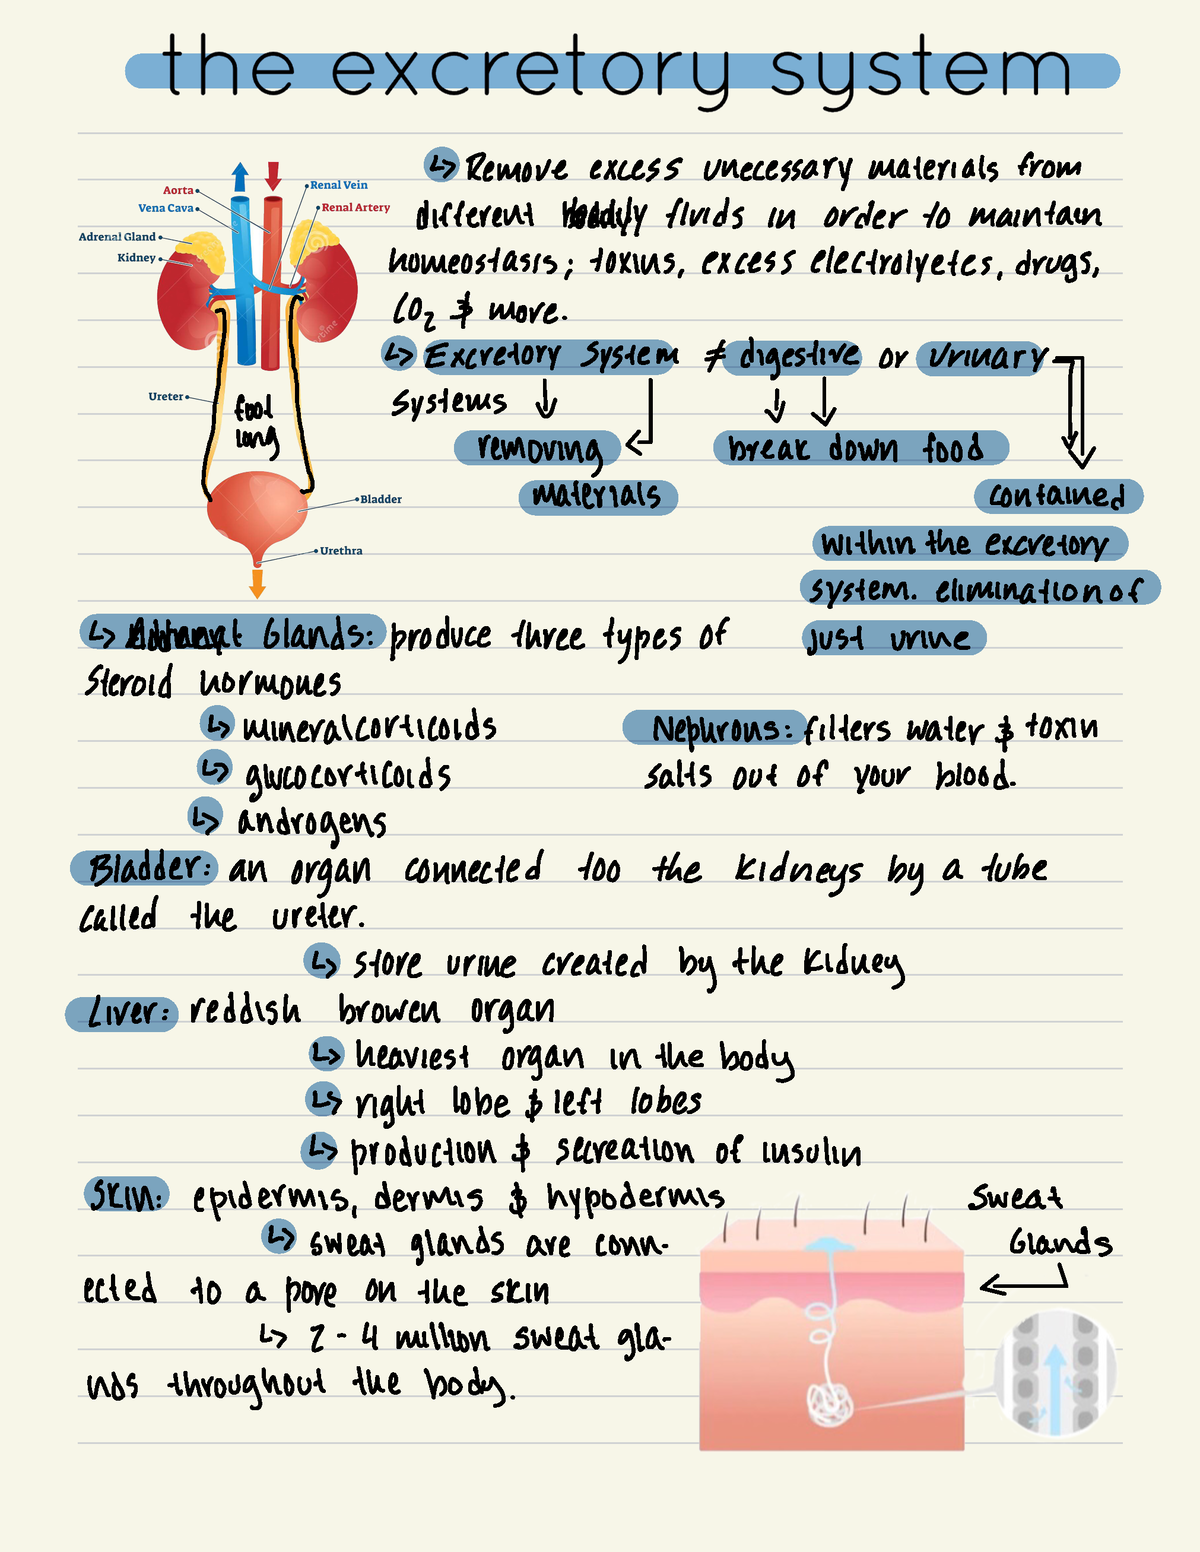 the excretory system
↳ Remove excess unecessary materials from
different fluids in order to maintain
homeostasis; toxins, excess electrolyetes, drugs,
CO₂ & more.
↳ Excretory System ≠ digestive or urinary
systems
removing
materials
break down food
contained
within the excretory
system. elimination of
just urine
Aorta
Vena Cava
Adrenal Gland
Kidney
Renal Vein
Renal Artery
Ureter
foot
long
Bladder
Urethra
↳ Glands: produce three types of
steroid hormones
↳ mineralcorticoids
↳ glucocorticoids
↳ androgens
Nephrons: filters water & toxin
salts out of your blood.
Bladder: an organ connected too the kidneys by a tube
called the ureter.
↳ store urine created by the kidney
Liver: reddish browen organ
↳ heaviest organ in the body
↳ right lobe & left lobes
↳ production & secreation of insulin
Skin: epidermis, dermis & hypodermis
↳ sweat glands are conn-
ected to a pore on the skin
↳ 2-4 million sweat gla-
nds throughout the body.
Sweat
Glands